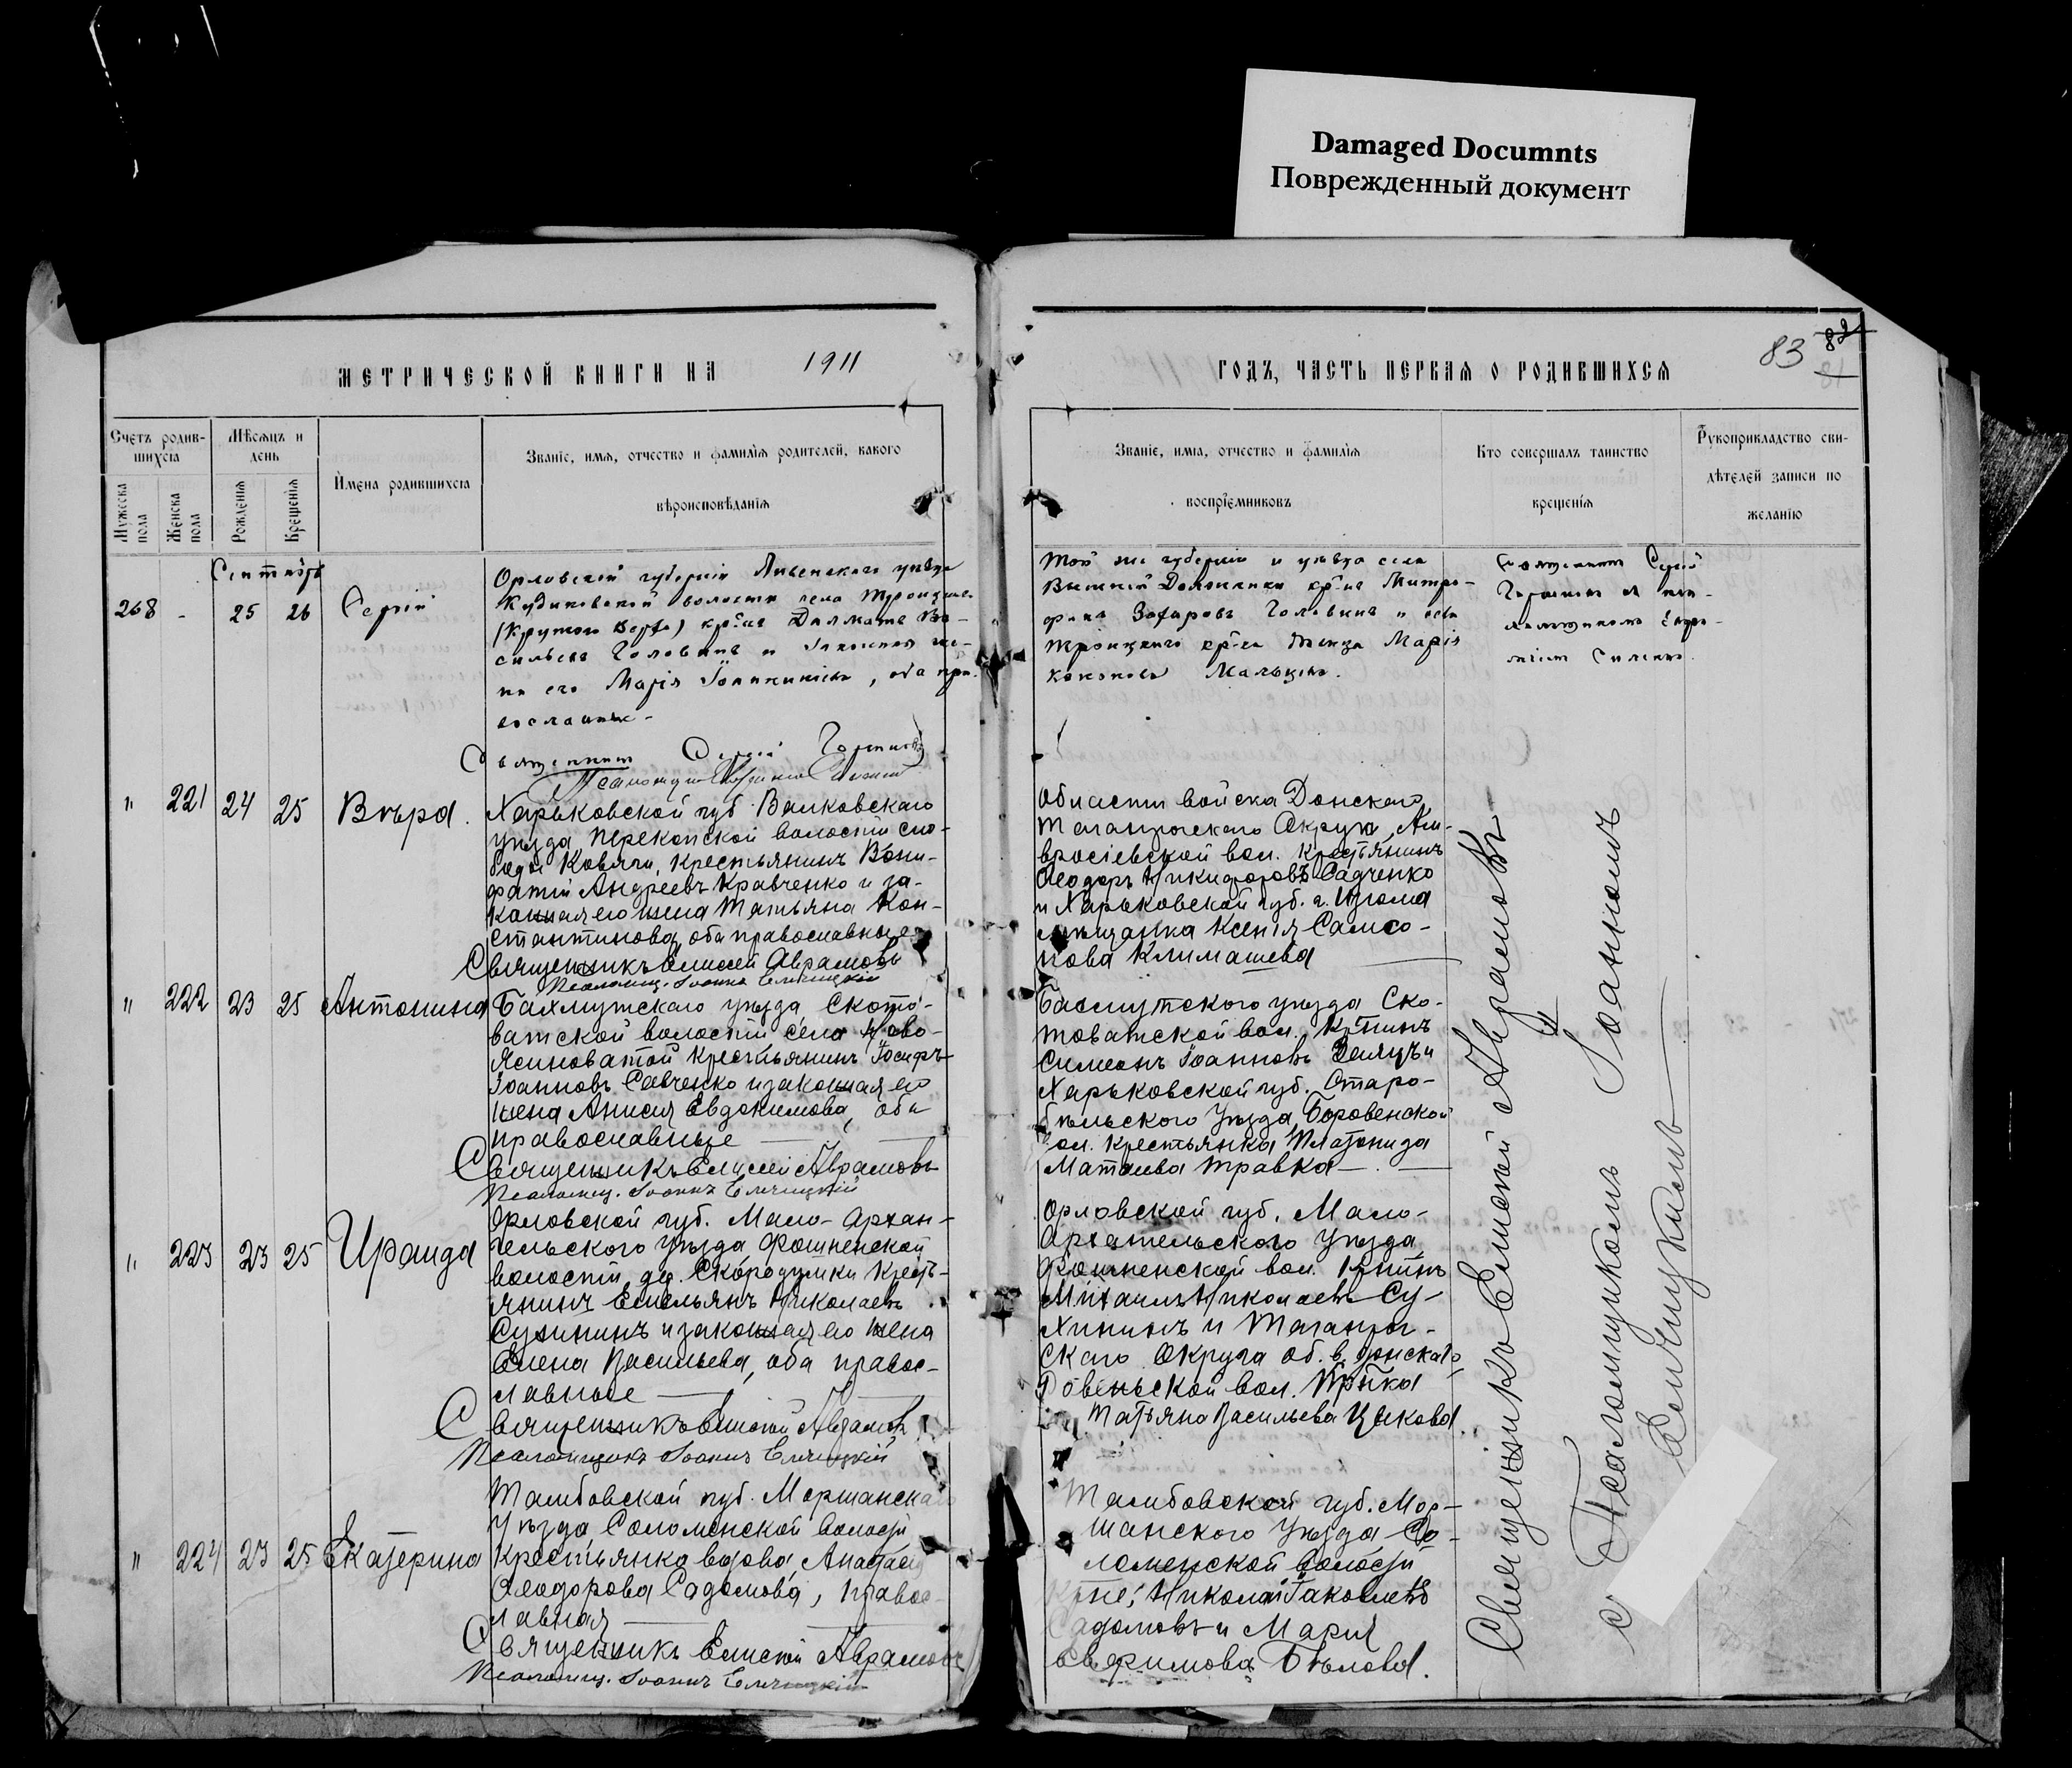 Damaged Documnts
Поврежденный документ
МЕТРИЧЕСКОЙ КНИГИ НА 1911
ГОДЪ, ЧАСТЬ ПЕРВАЯ О РОДИВШИХСЯ
83 82
Счетъ родив-
шихсіа
Мужеска
пола
Женска
пола
Мѣсяцъ и
день
Рожденія
Крещенія
Имена родившихсіа
Званіе, имя, отчество и фамилія родителей, какого
вѣроисповѣданія
Званіе, имıа, отчество и фамилія
воспріемниковъ
Кто совершалъ таинство
крещенія
Рукоприкладство сви-
дѣтелей записи по
желанію
268 - 25 26 Сергій
Орловской губерніи Ливенского уѣзда
волости села
(Крутого Верха) кр-нъ Далматъ Ва-
сильевъ Головинъ и законная же-
на его Марія, оба пра-
вославные-
Священникъ Сергій
Той же губерніи и уѣзда села
кр-нъ Митро-
фанъ Захаровъ Головинъ и села
Троицкого Марія
Священникъ Сергій
" 221 24 25 Вѣра.
Харьковской губ. Валковскаго
уѣзда, Перекопской волости сло-
боды Ковяги, крестьянинъ Вони-
фатій Андреевъ Кравченко и за-
конная его жена Татьяна Кон-
стантинова, оба православные
Священникъ Елисей Аврамовъ
Псаломщ. Іоаннъ Елычицкій
Области войска Донскаго,
Таганрогскаго Округа, Ам-
вросіевской вол. крестьянинъ
Ѳеодоръ Никифоровъ Садченко
и Харьковской губ. г. Изюма
мѣщанка Ксенія Самсо-
нова Климашева
" 222 23 25 Антонина
Бахмутскаго уѣзда, Ското-
ватской волости села Ново-
Ясиноватой крестьянинъ Іосифъ
Іоанновъ Савченко и законная его
жена Анисія Евдокимова, оба
православные
Священникъ Елисей Аврамовъ
Псаломщ. Іоаннъ Елычицкій
Бахмутского уѣзда Ско-
товатской вол. кр-нинъ
Симеонъ Іоанновъ и
Харьковской губ. Старо-
бѣльского уѣзда, Боровенской
вол. крестьянка Платонида
Матѳіева Травка
" 223 23 25 Ираида
Орловской губ. Мало-Архан-
гельского уѣзда Фошненской
волости, дер. Скородумки кресть-
янинъ Емельянъ Николаевъ
Сухининъ и законная его жена
Елена Васильева, оба правос-
лавные
Священникъ Елисей Аврамовъ
Псаломщикъ Іоаннъ Елычицкій
Орловской губ. Мало-
Архангельского уѣзда
Фошненской вол. кр-нинъ
Михаилъ Николаевъ Су-
хининъ и Таганрог-
скаго Округа об. в. Донскаго
Ровеньской вол.
Татьяна Васильева
" 224 23 25 Екатерина
Тамбовской губ. Моршанскаго
Уѣзда Соломенской волости
крестьянка вдова Анастасія
Ѳеодорова Садомова, правос-
лавная
Священникъ Елисей Аврамовъ
Псаломщ. Іоаннъ Елычицкій
Тамбовской губ. Мор-
шанского Уѣзда Со-
ломенской волости
Николай Іаковлевъ
Садомовъ и Марія
Евфимова Бѣлова.
Священникъ Елисей Аврамовъ
съ Псаломщикомъ Іоанномъ
Елычицкимъ